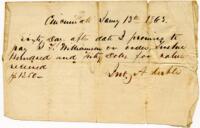 Cincinnati Jany 13th 1863
days after date I promise to
pay Williamson or order, Twelve
Hundred and fifty Dolls for value
received
$1250